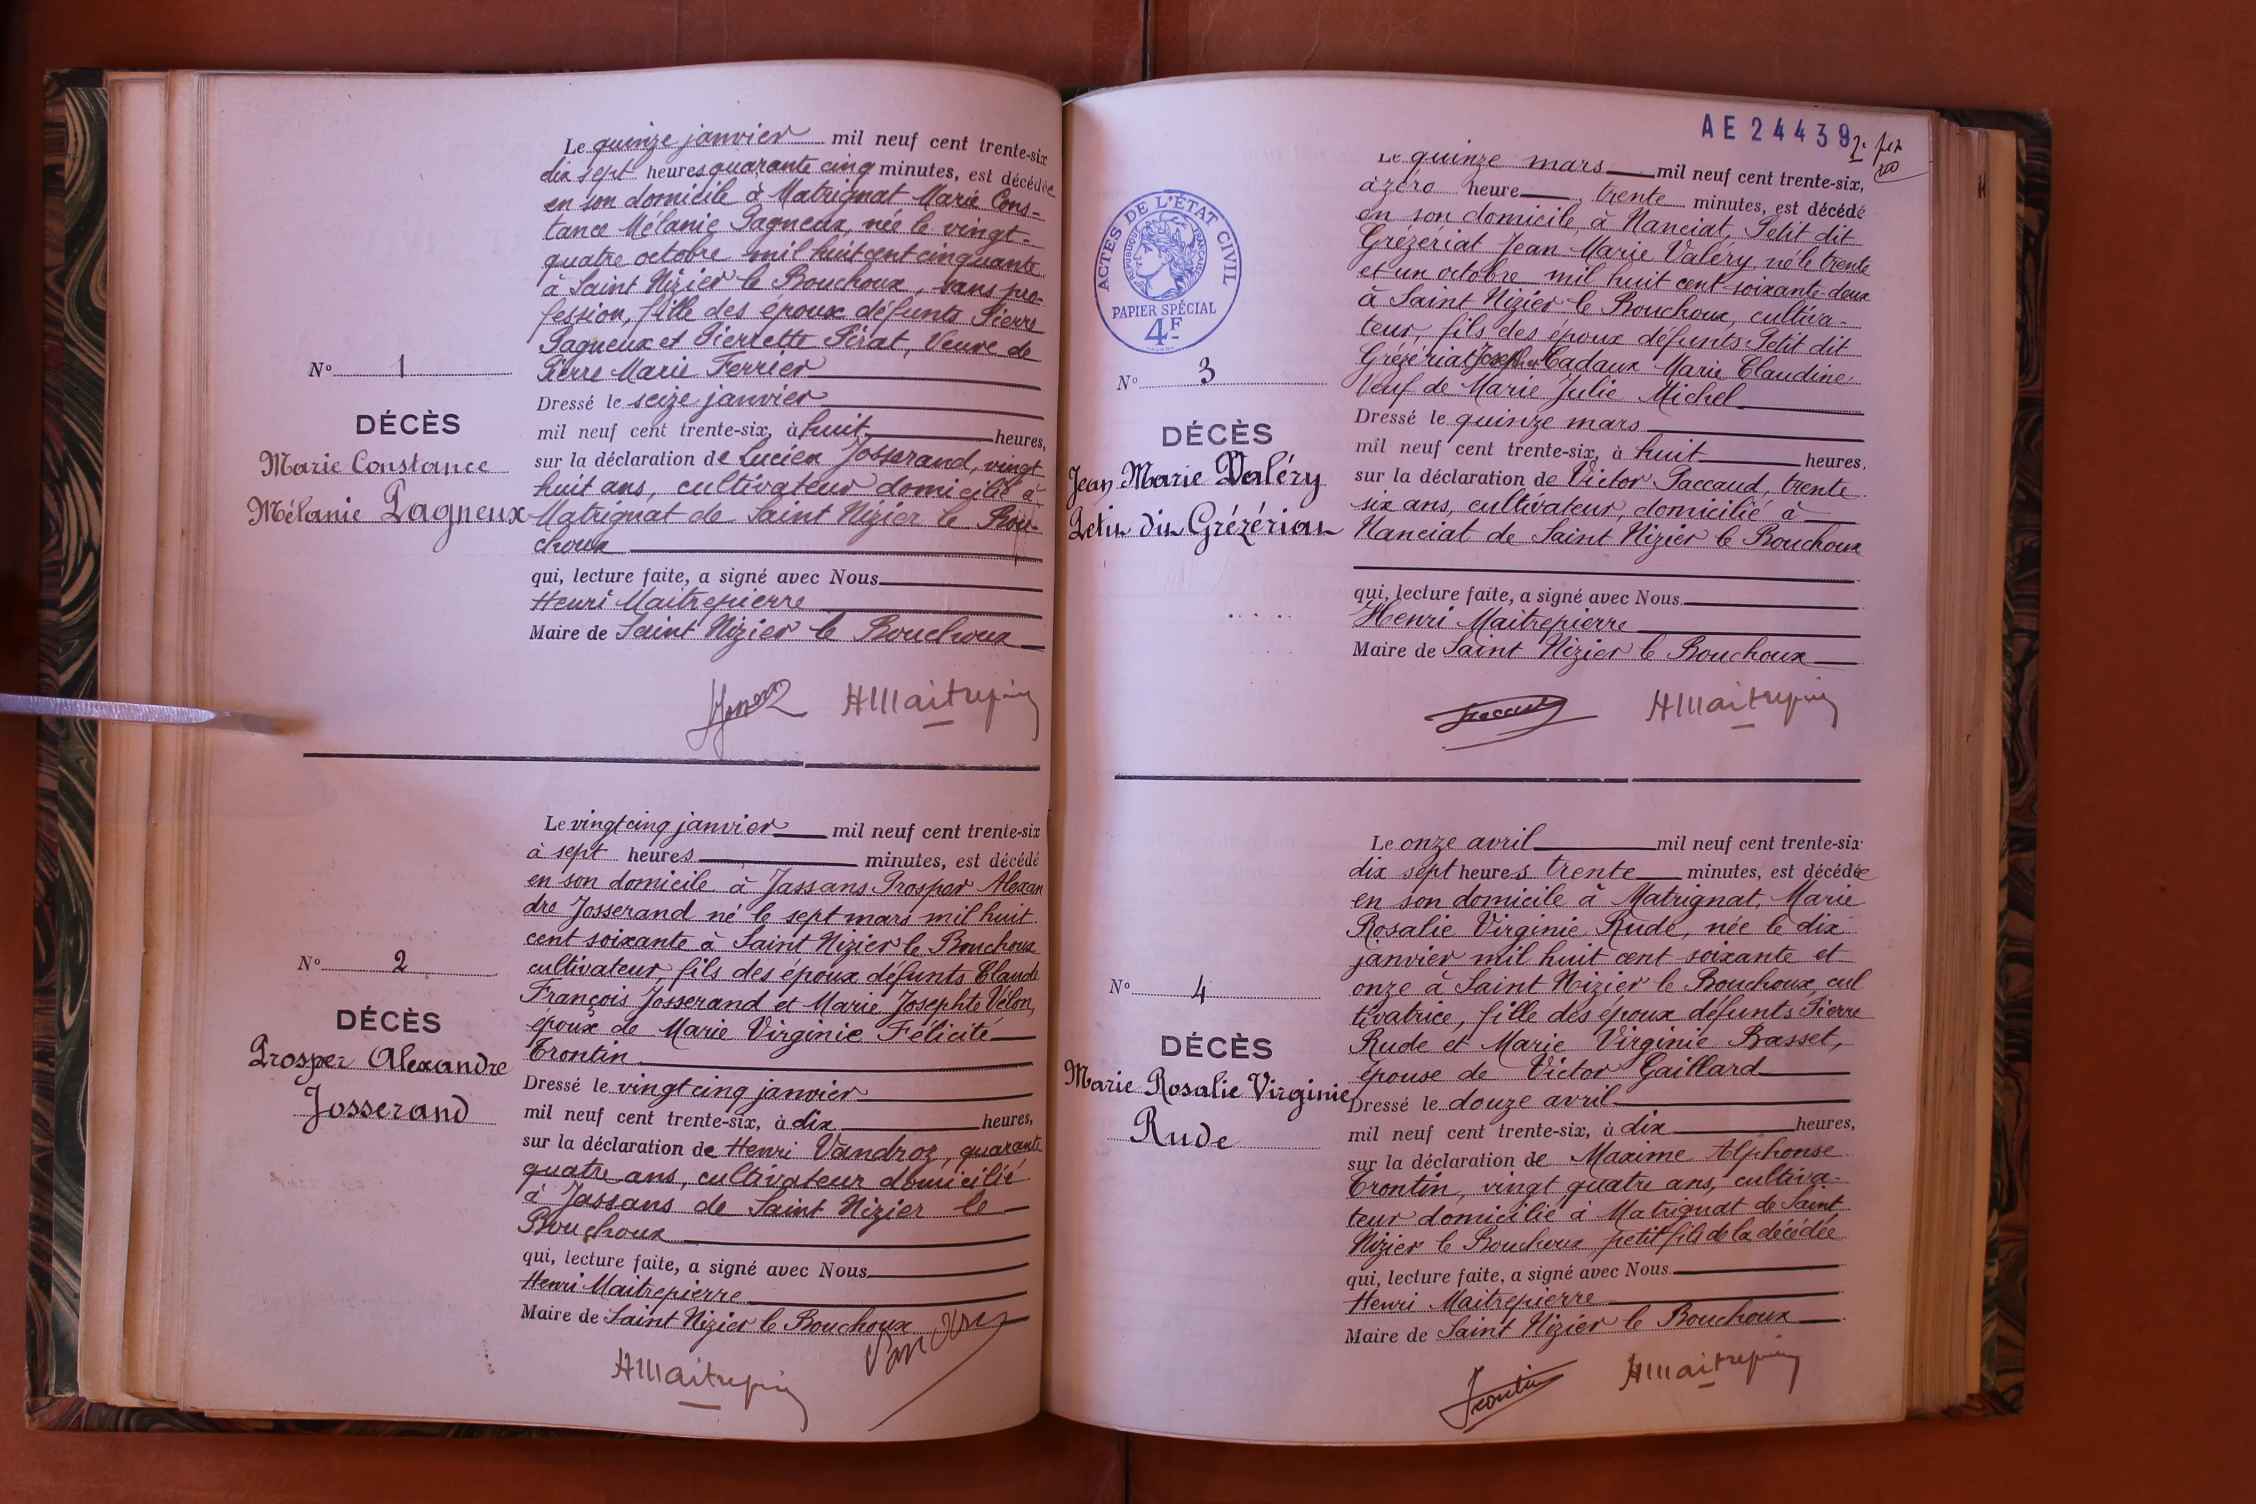 Le quinze janvier mil neuf cent trente-six
dix sept heures quarante cinq minutes, est décédée
en son domicile à Matrignat Marie Cons-
tance Mélanie Pagneux, née le vingt-
quatre octobre mil huit cent cinquante
à Saint Nizier le Bouchoux, sans pro-
fession, fille des époux défunts Pierre
Pagneux et Pierrette Pirat, Veuve de
Pierre Marie Ferrier
Dressé le seize janvier
mil neuf cent trente-six, à huit heures,
sur la déclaration de Lucien Josserand, vingt
huit ans, cultivateur domicilié à
Matrignat de Saint Nizier le Bou-
choux
qui, lecture faite, a signé avec Nous
Henri Maitrepierre
Maire de Saint Nizier le Bouchoux
N° 1
DÉCÈS
Marie Constance
Mélanie Pagneux
HMaitrepierre
Le vingt cinq janvier mil neuf cent trente-six
à sept heures minutes, est décédé
en son domicile à Jassans Prosper Alexan
dre Josserand né le sept mars mil huit
cent soixante à Saint Nizier le Bouchoux
cultivateur, fils des époux défunts Claude
François Josserand et Marie Josephte Vélon,
époux de Marie Virginie Félicité
Trontin
Dressé le vingt cinq janvier
mil neuf cent trente-six, à dix heures,
sur la déclaration de Henri Vandroz, quarante
quatre ans, cultivateur domicilié
à Jassans de Saint Nizier le
Bouchoux
qui, lecture faite, a signé avec Nous
Henri Maitrepierre
Maire de Saint Nizier le Bouchoux
N° 2
DÉCÈS
Prosper Alexandre
Josserand
HMaitrepierre
AE 24439
ACTES DE L'ÉTAT CIVIL
RÉPUBLIQUE FRANÇAISE
PAPIER SPÉCIAL
4F
Le quinze mars mil neuf cent trente-six,
à zéro heure trente minutes, est décédé
en son domicile, à Nanciat, Petit dit
Grézériat Jean Marie Valéry, né le trente
et un octobre mil huit cent soixante-deux
à Saint Nizier le Bouchoux, cultiva-
teur, fils des époux défunts Petit dit
Grézériat Joseph et Cadaux Marie Claudine
Veuf de Marie Julie Michel
Dressé le quinze mars
mil neuf cent trente-six, à huit heures,
sur la déclaration de Victor Paccaud, trente
six ans, cultivateur, domicilié à
Nanciat de Saint Nizier le Bouchoux
qui, lecture faite, a signé avec Nous
Henri Maitrepierre
Maire de Saint Nizier le Bouchoux
N° 3
DÉCÈS
Jean Marie Valéry
Petit dit Grézériat
Paccaud HMaitrepierre
Le onze avril mil neuf cent trente-six
dix sept heures trente minutes, est décédée
en son domicile à Matrignat, Marie
Rosalie Virginie Rude, née le dix
janvier mil huit cent soixante et
onze à Saint Nizier le Bouchoux, cul
tivatrice, fille des époux défunts Pierre
Rude et Marie Virginie Basset,
épouse de Victor Gaillard
Dressé le douze avril
mil neuf cent trente-six, à dix heures,
sur la déclaration de Maxime Alphonse
Trontin, vingt quatre ans, cultiva-
teur domicilié à Matrignat de Saint
Nizier le Bouchoux petit fils de la décédée
qui, lecture faite, a signé avec Nous
Henri Maitrepierre
Maire de Saint Nizier le Bouchoux
N° 4
DÉCÈS
Marie Rosalie Virginie
Rude
Trontin HMaitrepierre